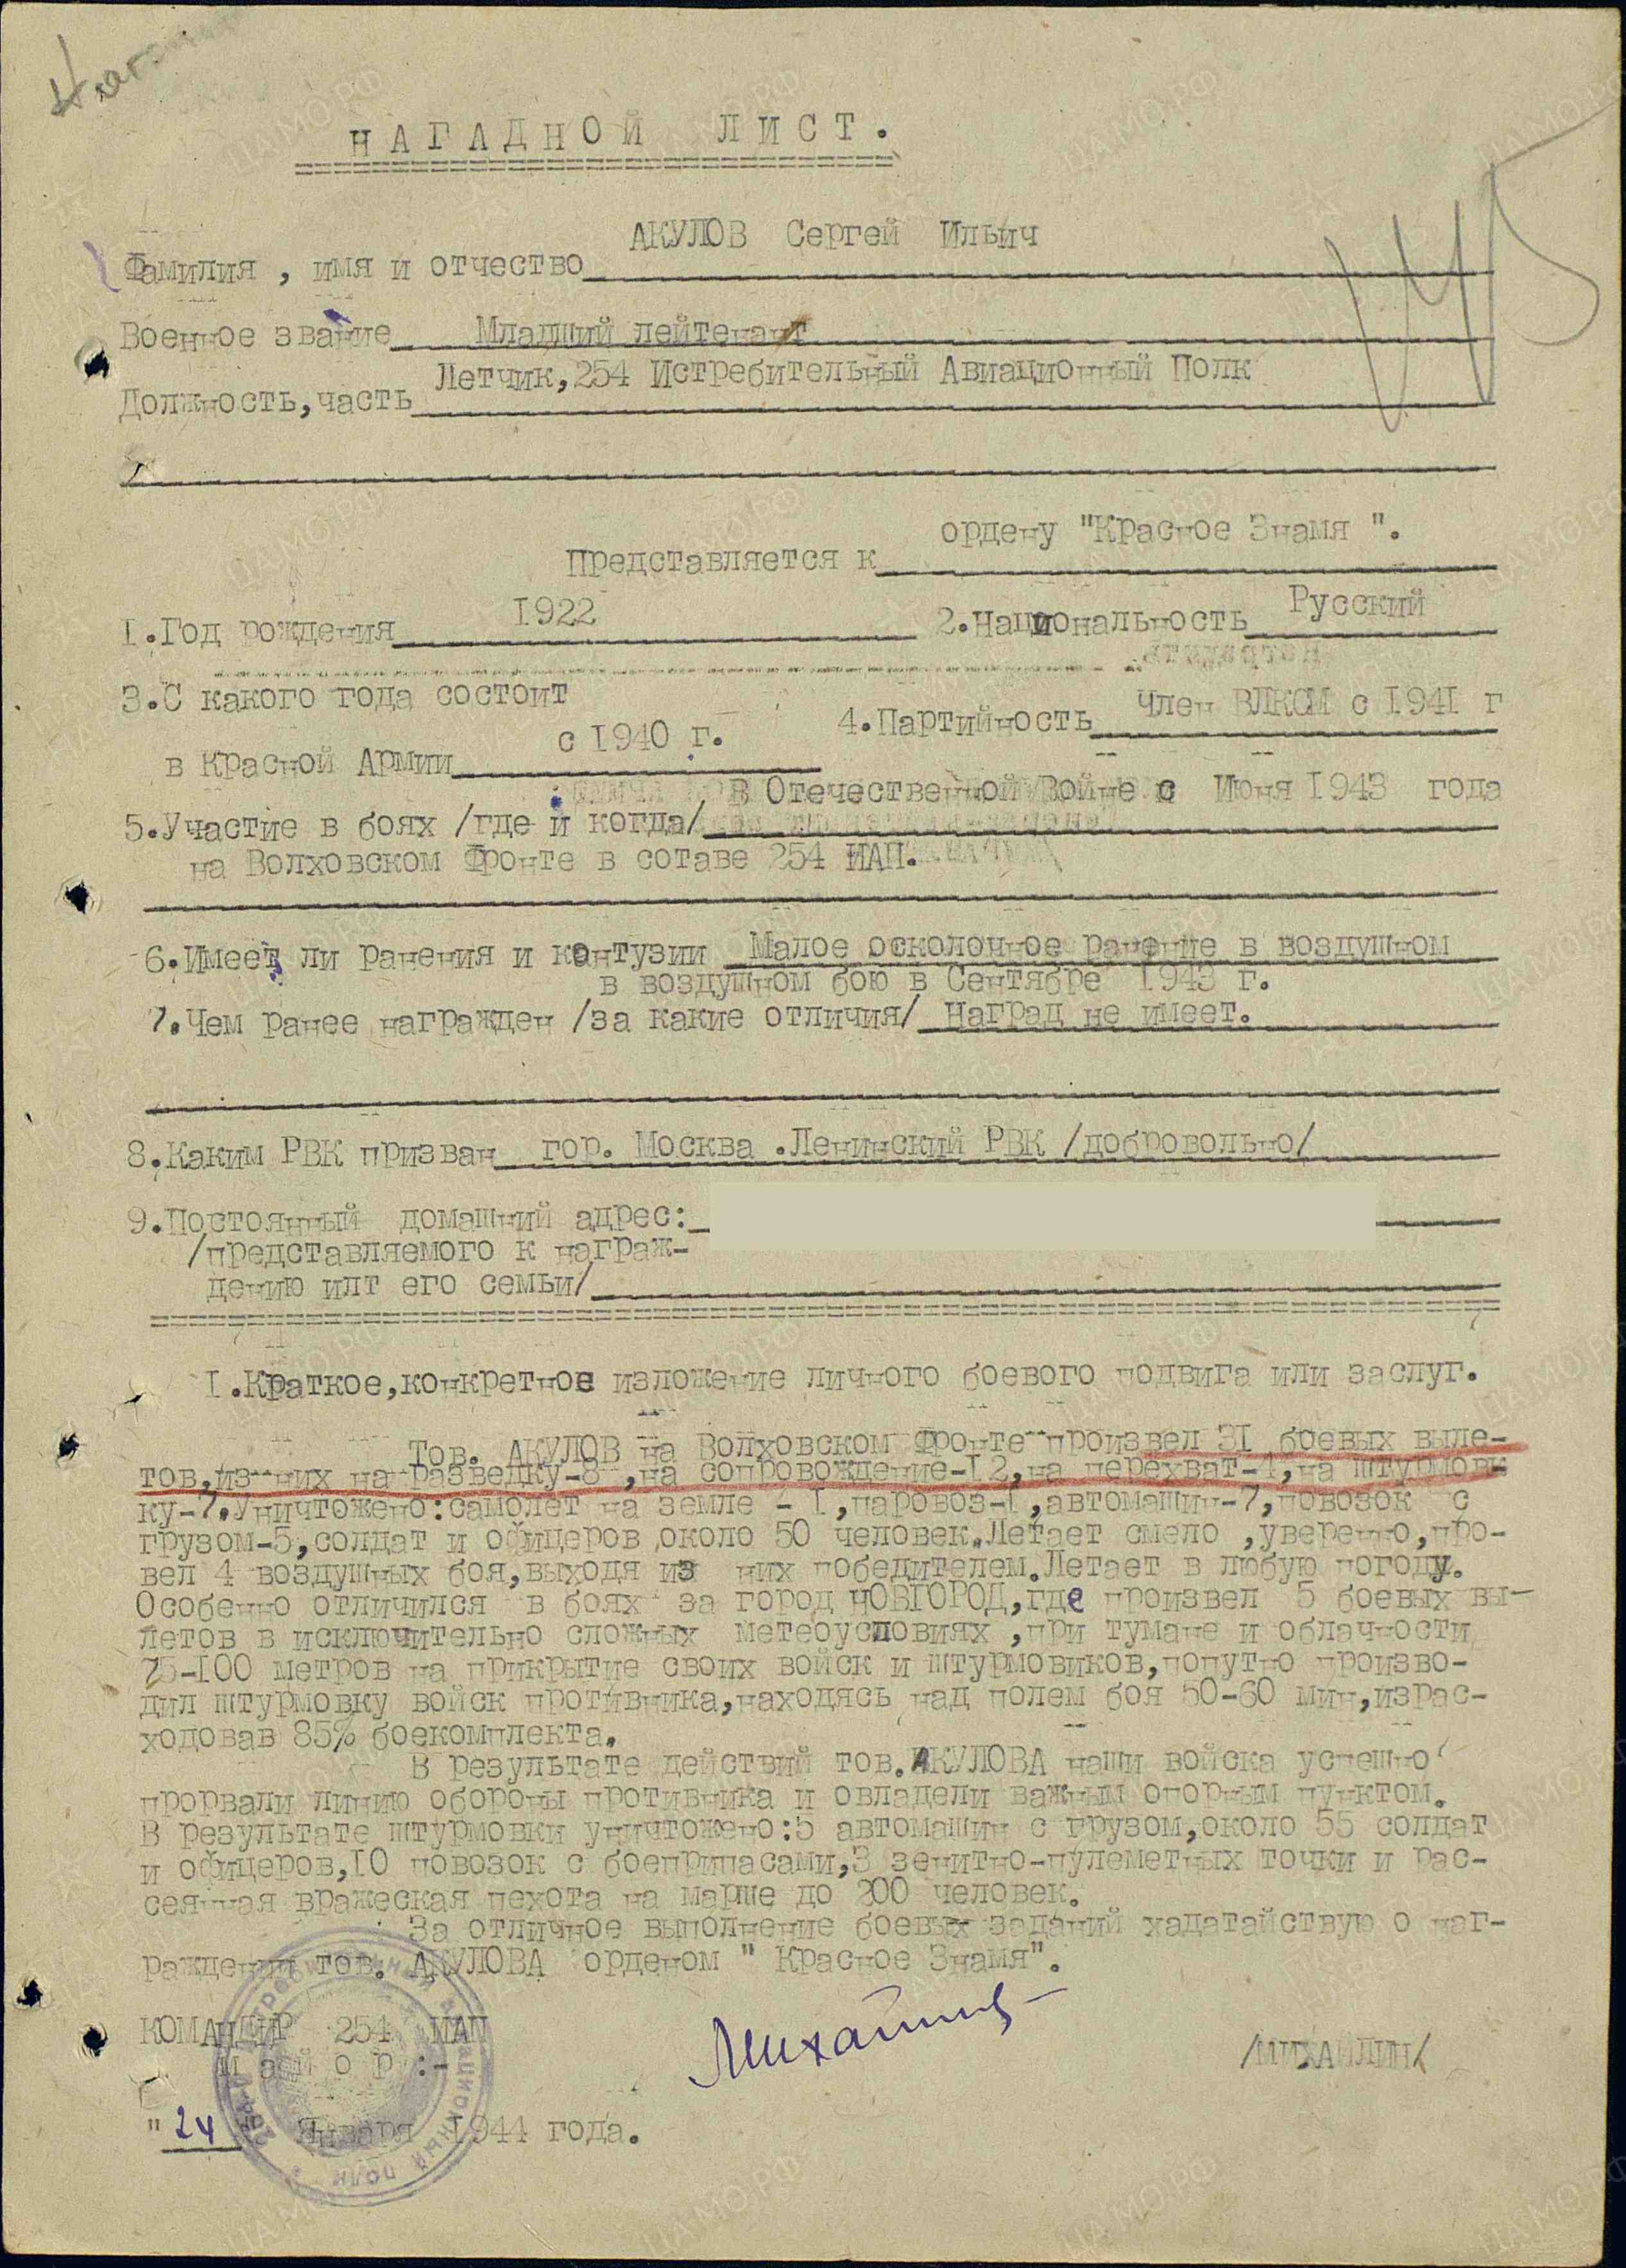 НАГАДНОЙ ЛИСТ.
АКУЛОВ Сергей Ильич
Фамилия , имя и отчество
Военное звание Младший лейтенант
Летчик,254 Истребительный Авиационный Полк
Должность,часть
ордену "Красное Знамя ".
Представляется к
1922
Русский
I.Год рождения 2.Национальность
3.С какого года состоит
член ВЛКСМ с 1941 г
4.Партийность
с 1940 г.
в Красной Армии
в Отечественной Войне с Июня 1943 года
5.Участие в боях /где и когда/
на Волховском Фронте в сотаве 254 ИАП.
6.Имеет ли ранения и контузии Малое осколочное ранение в воздушном
в воздушном бою в Сентябре 1943 г.
7.Чем ранее награжден /за какие отличия/ Наград не имеет.
8.Каким РВК призван гор. Москва .Ленинский РВК /добровольно/
9.Постоянный домашний адрес:
/представляемого к награж-
дению илт его семьи/
I.Краткое,конкретное изложение личного боевого подвига или заслуг.
Тов. АКУЛОВ на Волховском Фронте произвел 31 боевых выле-
тов,из них на разведку-8 ,на сопровождение-12,на перехват-4,на штурмов-
ку-7.Уничтожено:самолет на земле - I,паровоз-I,автомашин-7,повозок с
грузом-5,солдат и офицеров около 50 человек.Летает смело ,уверенно,про-
вел 4 воздушных боя,выходя из них победителем.Летает в любую погоду.
Особенно отличился в боях за город НОВГОРОД,где произвел 5 боевых вы-
летов в исключительно сложных метеоусловиях ,при тумане и облачности
75-100 метров на прикрытие своих войск и штурмовиков,попутно произво-
дил штурмовку войск противника,находясь над полем боя 50-60 мин,израс-
ходовав 85% боекомплекта.
В результате действий тов.АКУЛОВА наши войска успешно
прорвали линию обороны противника и овладели важным опорным пунктом.
В результате штурмовки уничтожено:5 автомашин с грузом,около 55 солдат
и офицеров,10 повозок с боеприпасами,3 зенитно-пулеметных точки и рас-
сеянная вражеская пехота на марше до 200 человек.
За отличное выполнение боевых заданий хадатайствую о наг-
раждении тов. АКУЛОВА орденом " Красное Знамя".
КОМАНДИР 254 ИАП
майор:-
Михайлин
/МИХАЙЛИН/
"24" Января 1944 года.